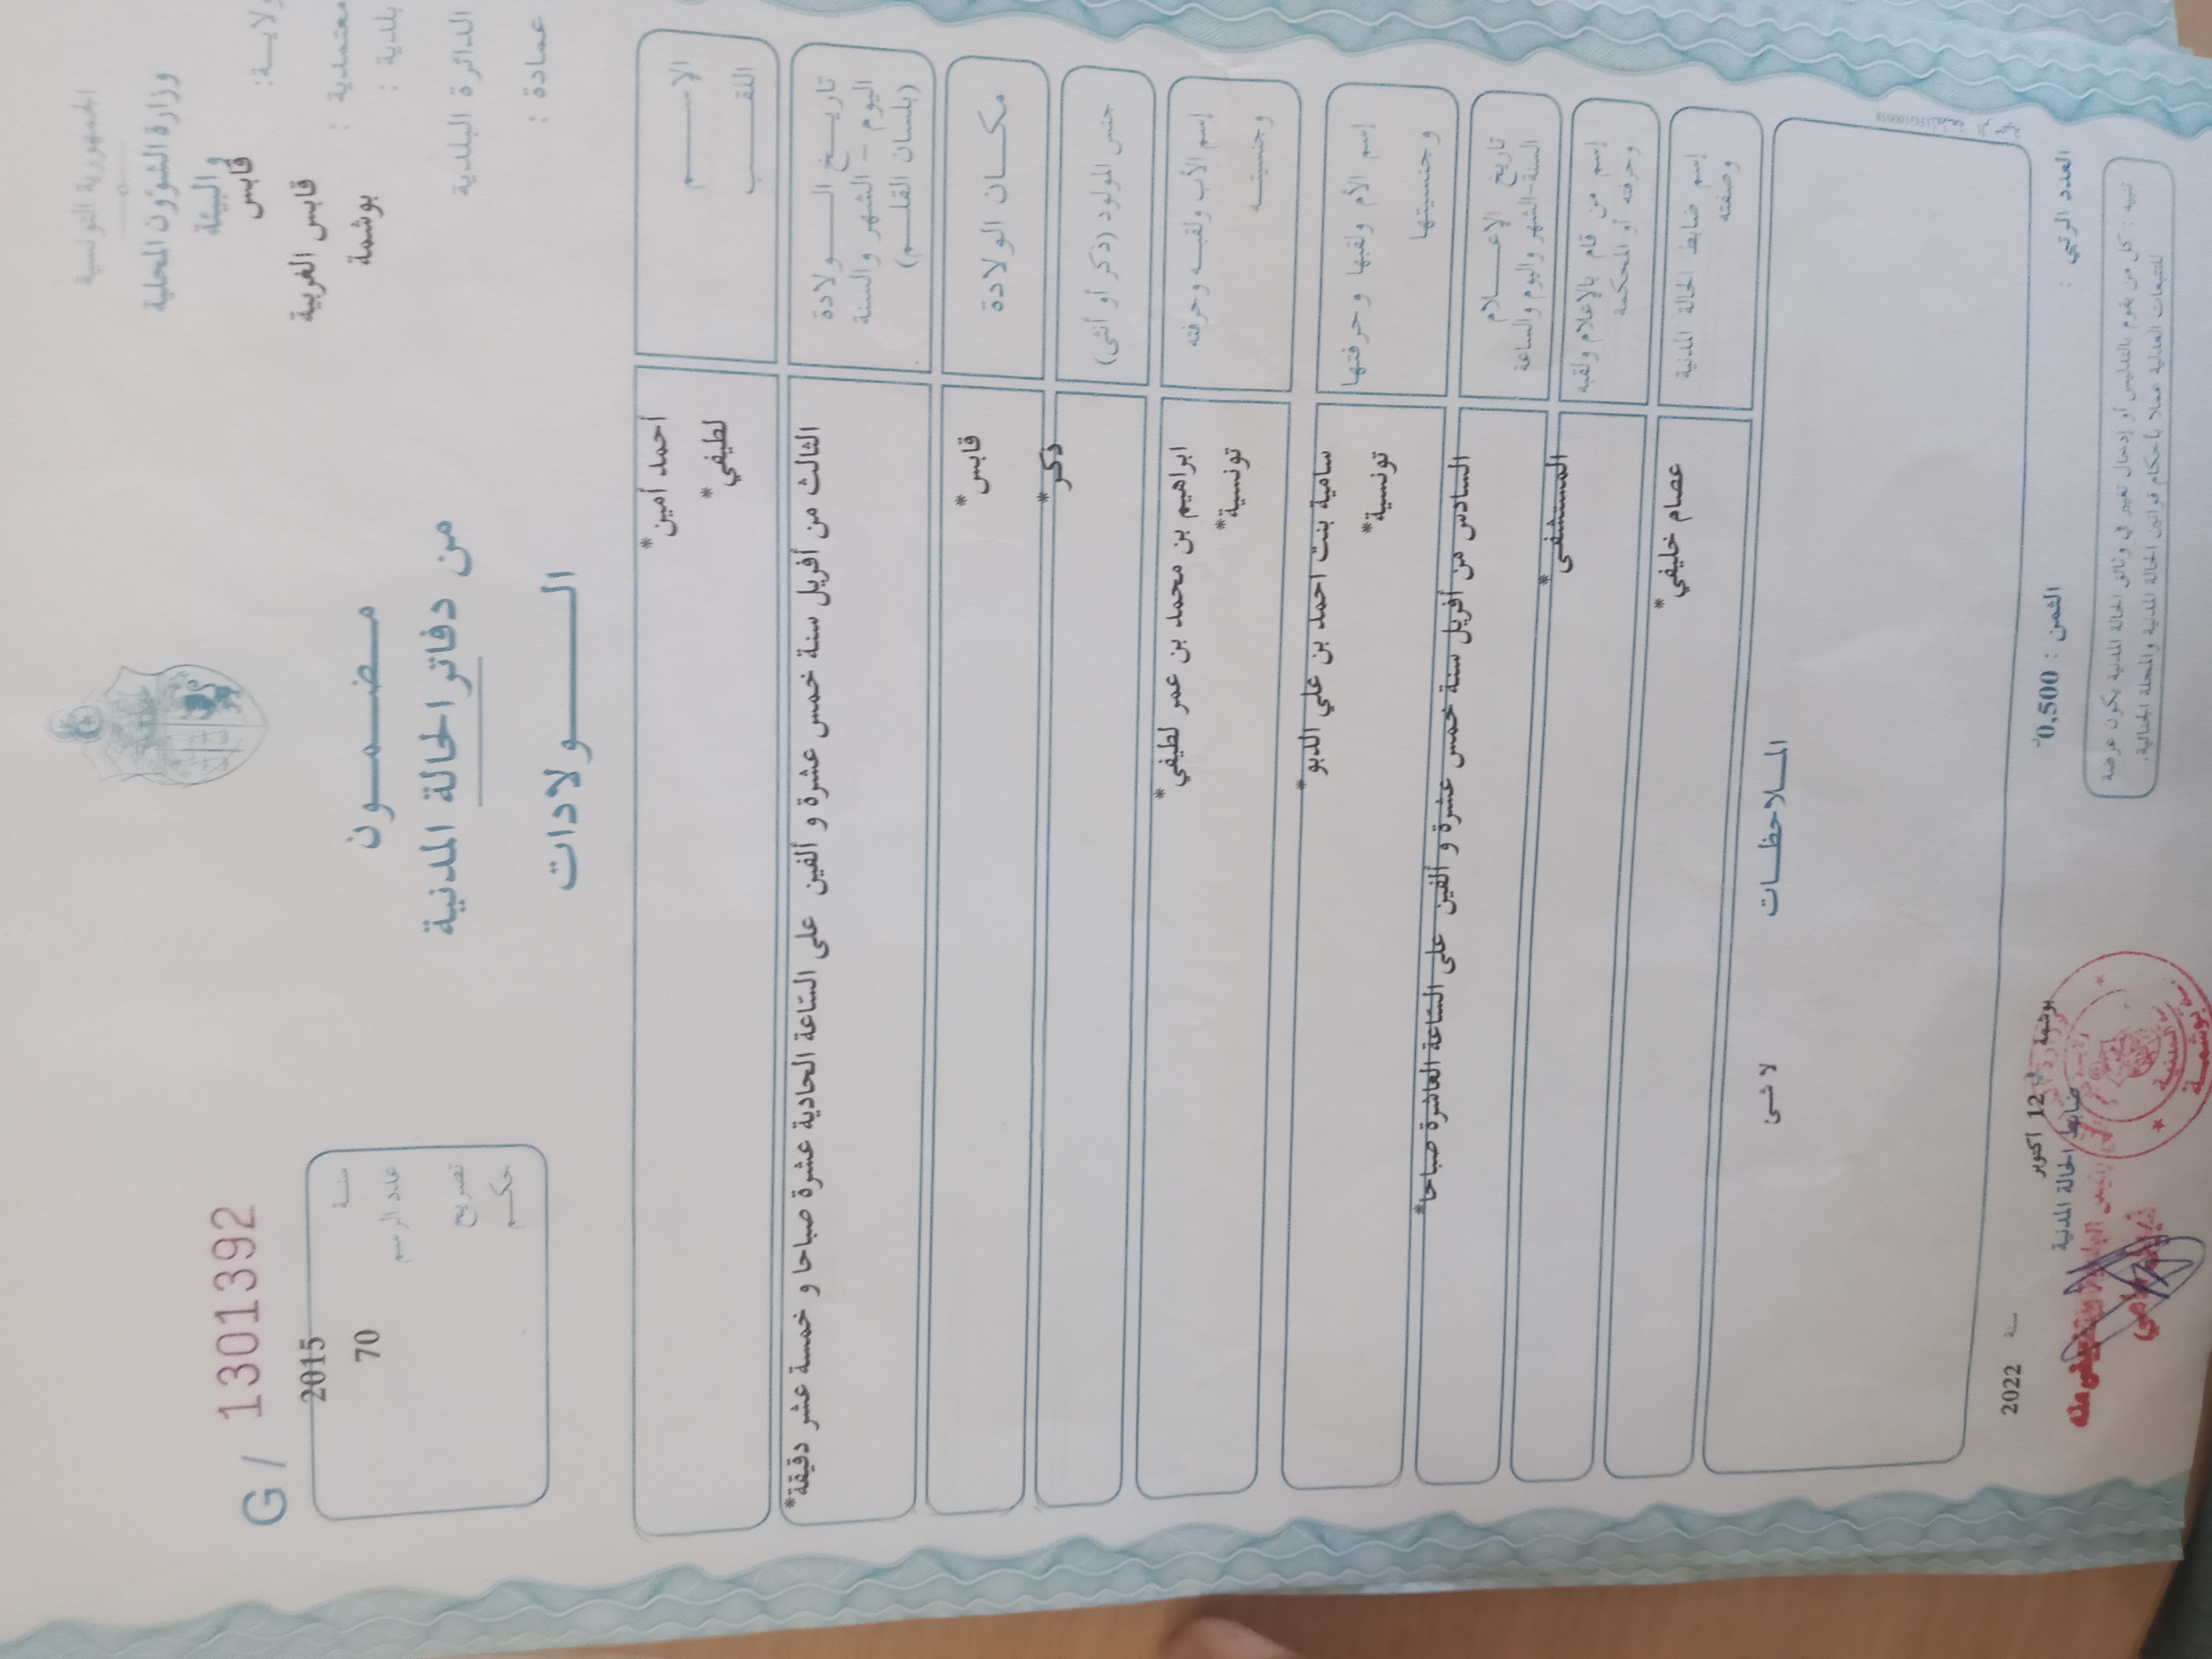 الجمهورية التونسية
وزارة الشؤون المحلية
والبيئة
ولايــة: قابس
معتمدية : قابس الغربية
بلدية : بوشمة
الدائرة البلدية
عمادة :
مـضـمـون
من دفاتر الحالة المدنية
الــولادات
G / 1301392
سنـة 2015
عدد الرسم 70
تصريح
حكـم
الإســـم أحمد أمين*
اللقـــب لطيفي*
تاريــخ الــولادة
اليوم - الشهر والسنة
(بلسان القلــم)
الثالث من أفريل سنة خمس عشرة و ألفين على الساعة الحادية عشرة صباحا و خمسة عشر دقيقة*
مكــان الولادة قابس*
جنس المولود (ذكر أو أنثى) ذكر*
إسم الأب ولقبـه وحرفته ابراهيم بن محمد بن عمر لطيفي*
وجنسيتـه تونسية*
إسم الأم ولقبها وحرفتها سامية بنت احمد بن علي الدبو*
وجنسيتها تونسية*
تاريخ الإعــلام
السنة-الشهر واليوم والساعة
السادس من أفريل سنة خمس عشرة و ألفين على الساعة العاشرة صباحا*
إسم من قام بالإعلام ولقبه
وحرفته أو المحكمة
المستشفى*
إسم ضابط الحالة المدنية
وصفته
عصام خليفي*
المـلاحظــات
لا شئ
العدد الرتبي :
الثمن : 0,500
بوشمة 12 اكتوبر سنة 2022
ضابط الحالة المدنية
تنبيه : كل من يقوم بالتدليس أو إدخال تغيير في وثائق الحالة المدنية يكون عرضة
للتتبعات العدلية عملا بأحكام قوانين الحالة المدنية والمجلة الجنائية.